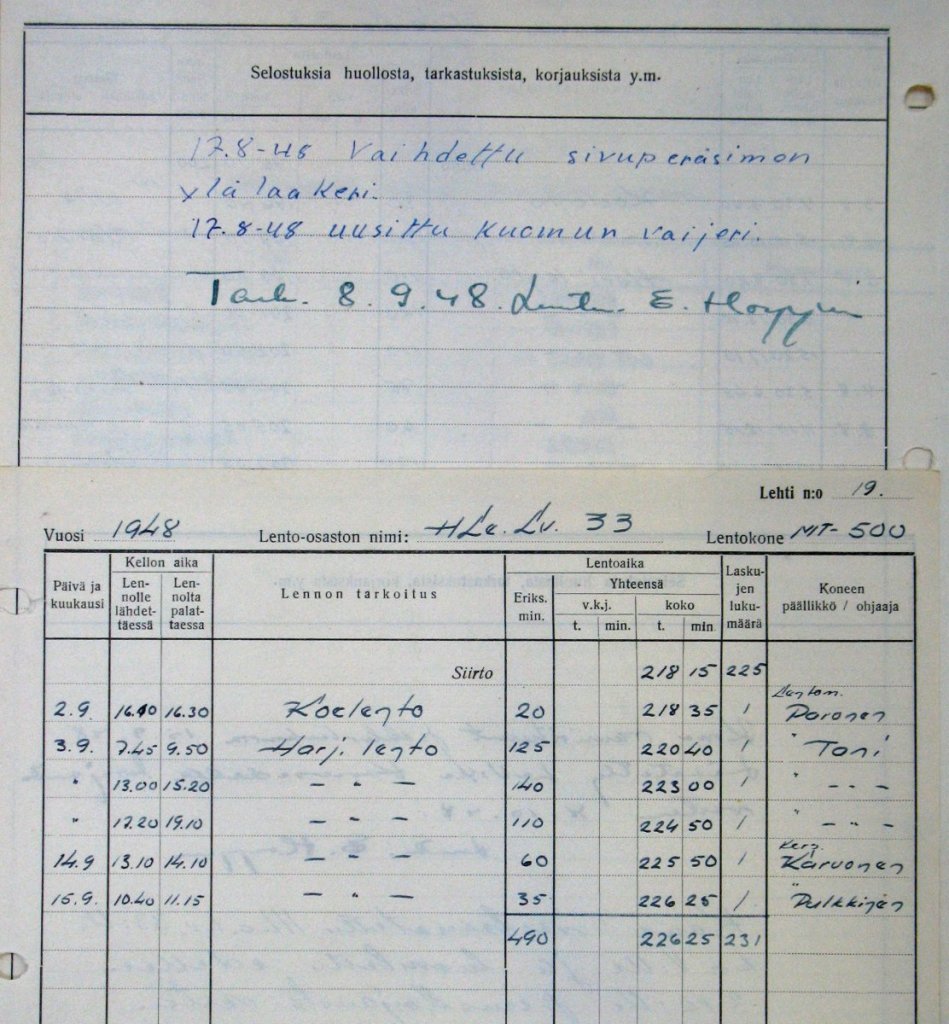 Selostuksia huollosta, tarkastuksista, korjauksista y.m.
17.8-48 Vaihdettu sivuperäsimen
ylälaakeri.
17.8-48 uusittu kuomun vaijeri.
Tark. 8.9.48. E.
Lehti n:o 19.
Vuosi 1948 Lento-osaston nimi: HLe.Lv. 33 Lentokone MT-500
Päivä ja kuukausi Kellon aika Lennolle lähdettäessä Lennolta palattaessa Lennon tarkoitus Eriks. min. Lentoaika Yhteensä v.k.j. t. min. koko t. min Laskujen lukumäärä Koneen päällikkö / ohjaaja
Siirto 218 15 225
2.9. 16.10 16.30 Koelento 20 218 35 1 Poronen
3.9. 7.45 9.50 Harj. lento 125 220 40 1 " Toni
" 13.00 15.20 — " — 140 223 00 1 " - " -
" 17.20 19.10 — " — 110 224 50 1 " - " -
14.9 13.10 14.10 — " — 60 225 50 1 Kers. Karvonen
15.9. 10.40 11.15 — " — 35 226 25 1 " Pulkkinen
490 226 25 231